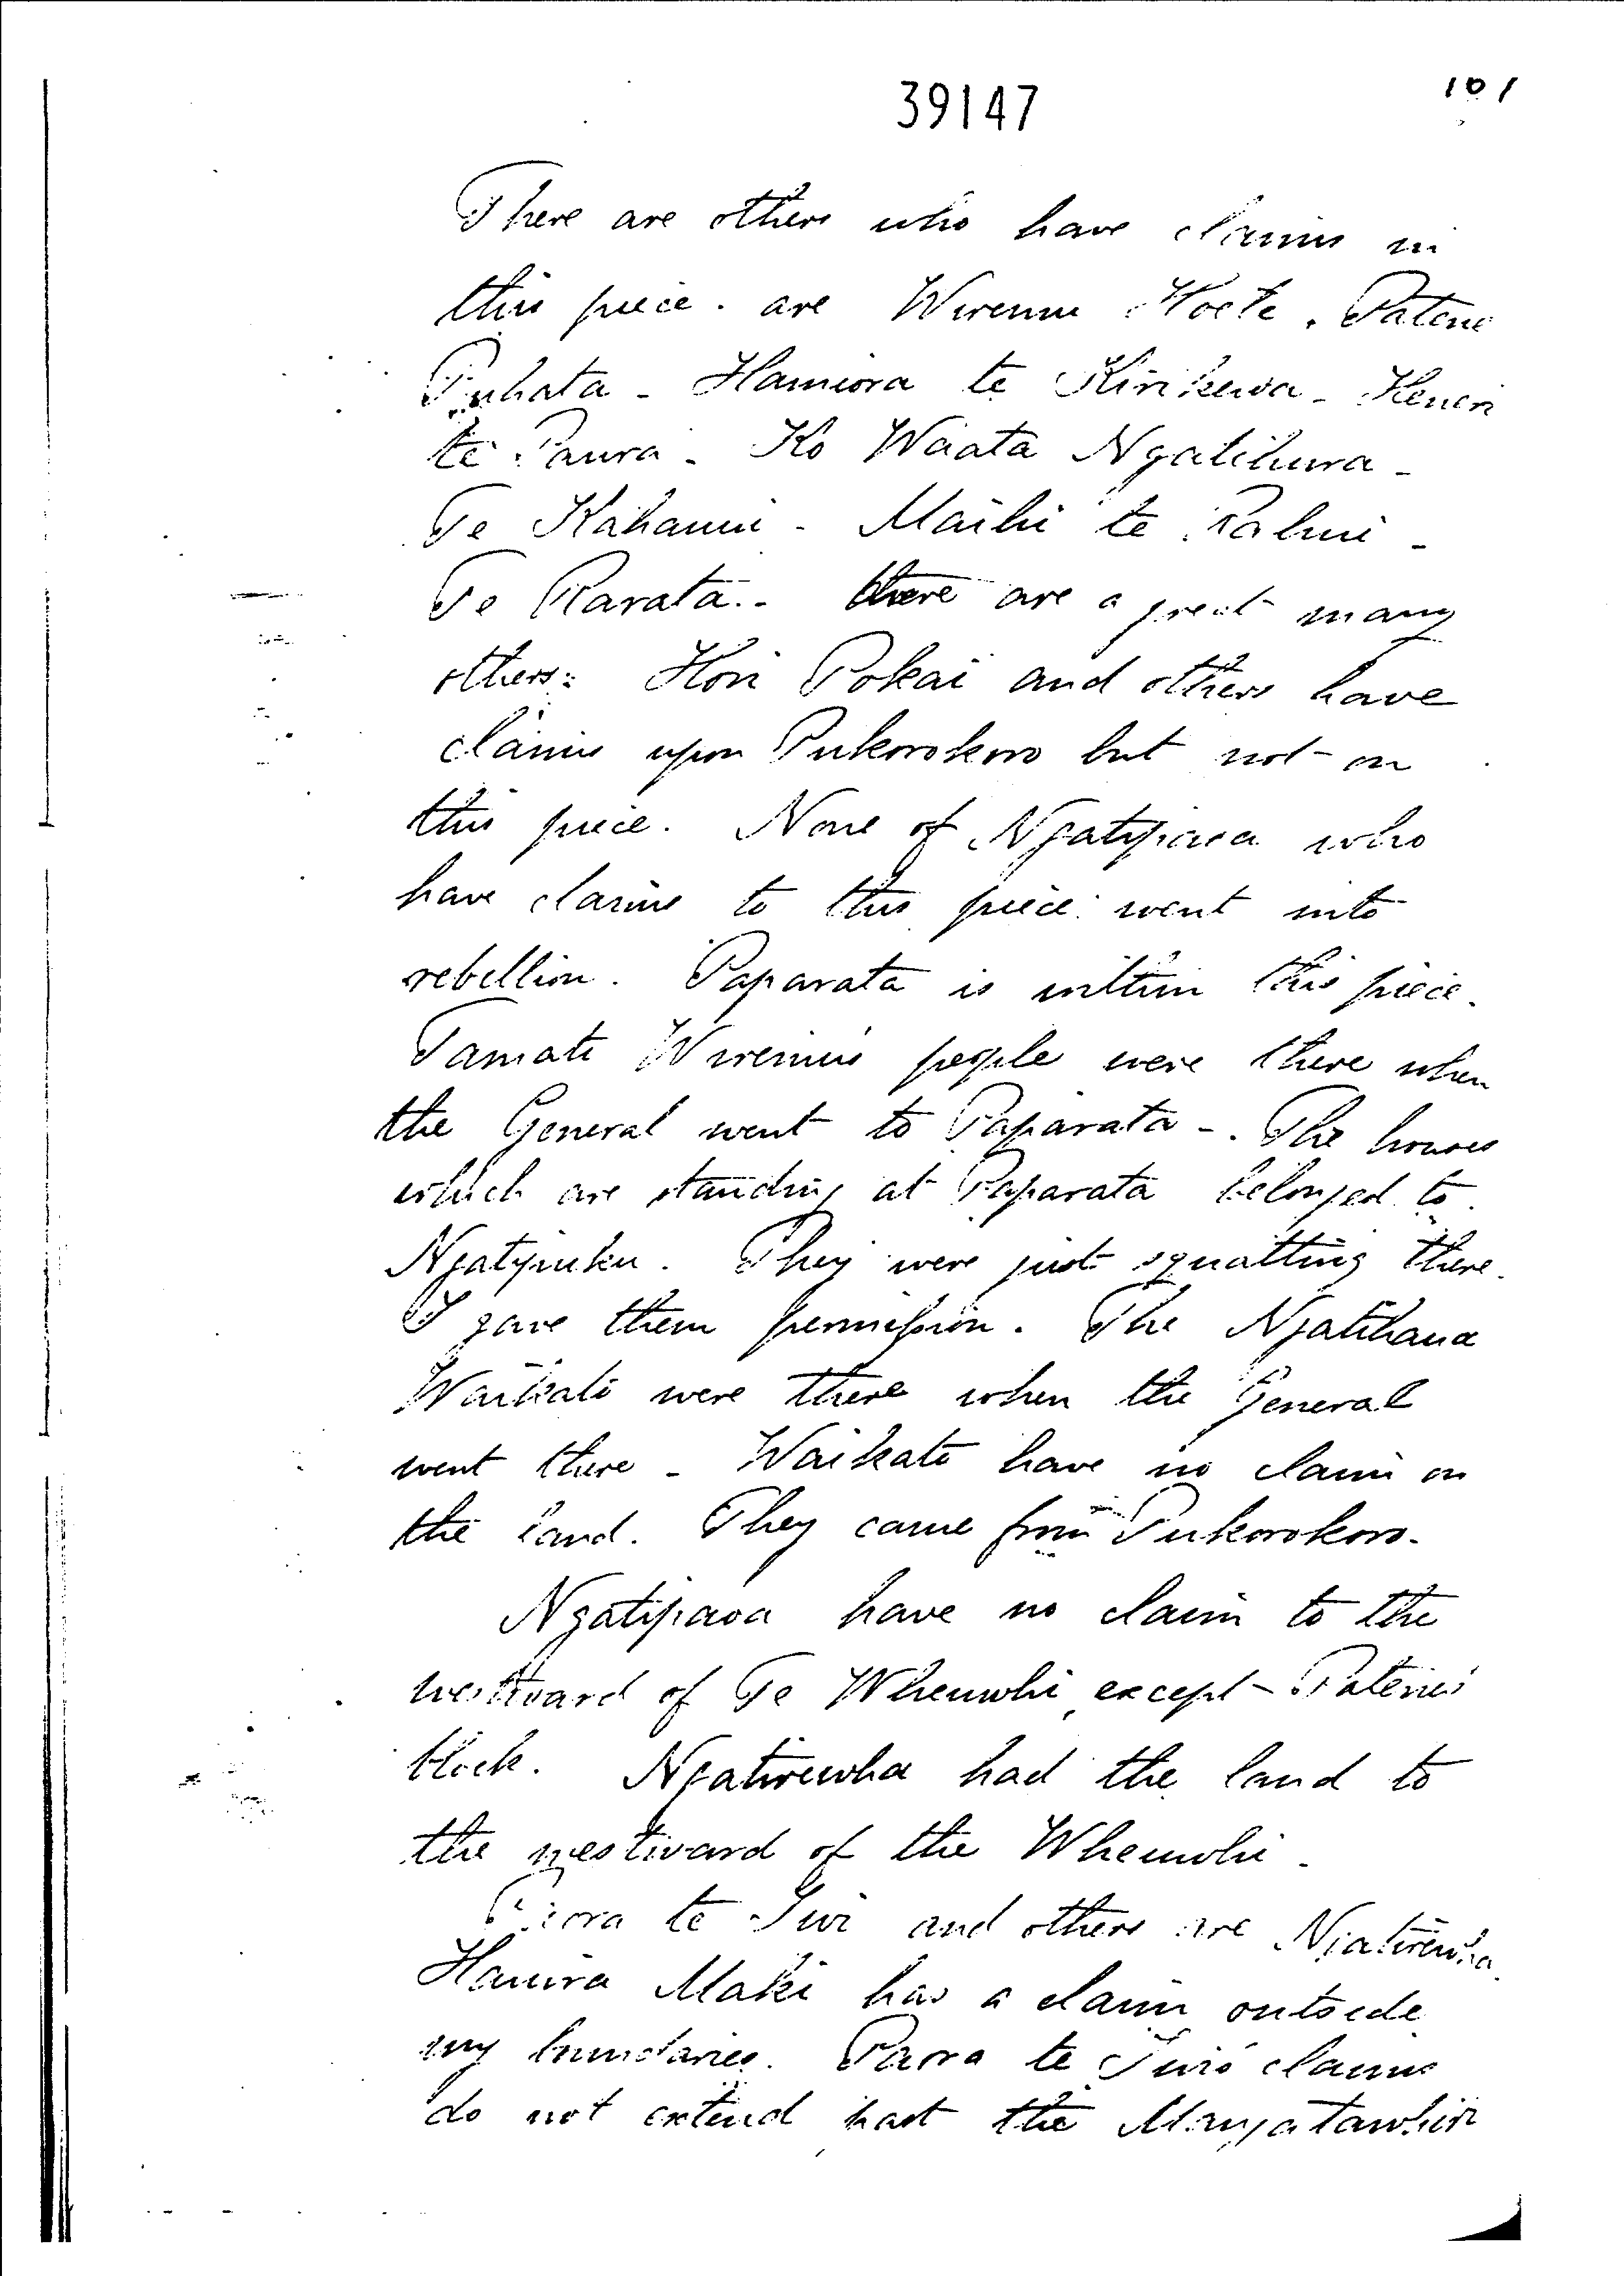 39147
101
There are others who have claims in
this piece. are Wiremu Hoete. Patene
Puhata - Hamiora te Kirikewa - Heneri
te Paura - Ko Waata Ngatihura -
Te Kahaumi - Maihi te Rahui -
Te Rarata.- there are a great many
others: Hori Pokai and others have
claims upon Pukorokoro but not on
this piece. None of Ngatipaoa who
have claims to this piece went into
rebellion. Paparata is within this piece.
Tamati Wiremu's people were there when
the General went to Paparata -. The houses
which are standing at Paparata belonged to
Ngatipuku. They were just squatting there.
I gave them permission. The Ngatihaua
Waikato were there when the General
went there - Waikato have no claim on
the land. They came from Pukorokoro.
Ngatipaoa have no claim to the
westward of Te Whenuohi, except - Patene's
block. Ngatirewha had the land to
the westward of the Whenuohi -
te Iwi and others are Ngatirewha.
Hamira Maki has a claim outside
my boundaries. Paora te Iwi's claims
do not extend past the Mangatawhiri